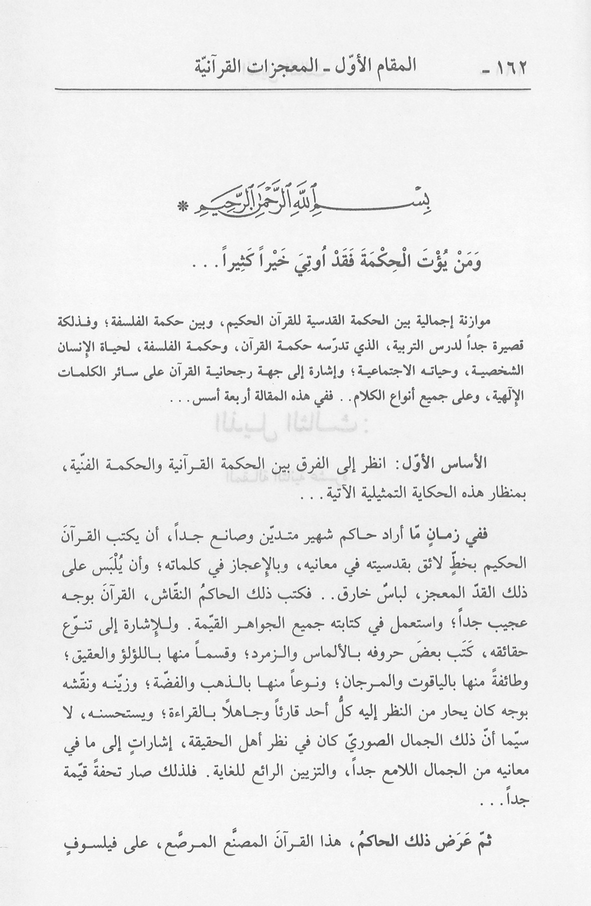 ١٦٢ - المقام الأوّل - المعجزات القرآنيّة
بِسْمِ اللَّهِ الرَّحْمَنِ الرَّحِيمِ *
وَمَنْ يُؤْتَ الْحِكْمَةَ فَقَدْ اُوتِيَ خَيْراً كَثِيراً...
موازنة إجمالية بين الحكمة القدسية للقرآن الحكيم، وبين حكمة الفلسفة؛ وفـذلكة
قصيرة جداً لدرس التربية، الذي تدرّسه حكمـة القرآن، وحكمـة الفلسفة، لحيـاة الإنسان
الشخصيـة، وحياتـه الاجتماعيـة؛ وإشارة إلى جهـة رجحانية القرآن على سائر الكلمات
الإلٓهية، وعلى جميع أنواع الكلام.. ففي هذه المقالة أربعة أسس...
الأساس الأوّل: انظر إلى الفرق بين الحكمة القـرآنية والحكمـة الفنّيـة،
بمنظار هذه الحكاية التمثيلية الآتية...
ففي زمـانٍ مّا أراد حـاكم شهير متـديّن وصانـع جـداً، أن يكتب القـرآنَ
الحكيم بخطٍّ لائق بقدسيته في معانيه، وبالإعجاز في كلماته؛ وأن يُلْبَس على
ذلك القدّ المعجز، لباسٌ خارق.. فكتب ذلك الحاكمُ النقّاش، القرآنَ بوجـه
عجيب جداً؛ واستعمل في كتابته جميع الجواهـر القيّمة. وللإشارة إلى تنوّع
حقائقه، كَتَب بعضَ حروفه بـالألماس والـزمرد؛ وقسمـاً منها بـاللؤلؤ والعقيق؛
وطائفةً منها بالياقوت والمـرجان؛ ونـوعاً منهـا بالـذهب والفضّة؛ وزيّـنه ونقّشه
بوجه كان يحار من النظر إليه كلُّ أحد قارئاً وجـاهلًا بـالقراءة؛ ويستحسنـه، لا
سيّما أنّ ذلك الجمال الصوريّ كان في نظر أهل الحقيقة، إشاراتٍ إلى ما في
معانيه من الجمال اللامع جداً، والتزيين الرائع للغاية. فلذلك صار تحفةً قيّمة
جداً...
ثمّ عَرَض ذلك الحاكمُ، هذا القـرآنَ المصنَّع المـرصَّع، على فيلسـوفٍ